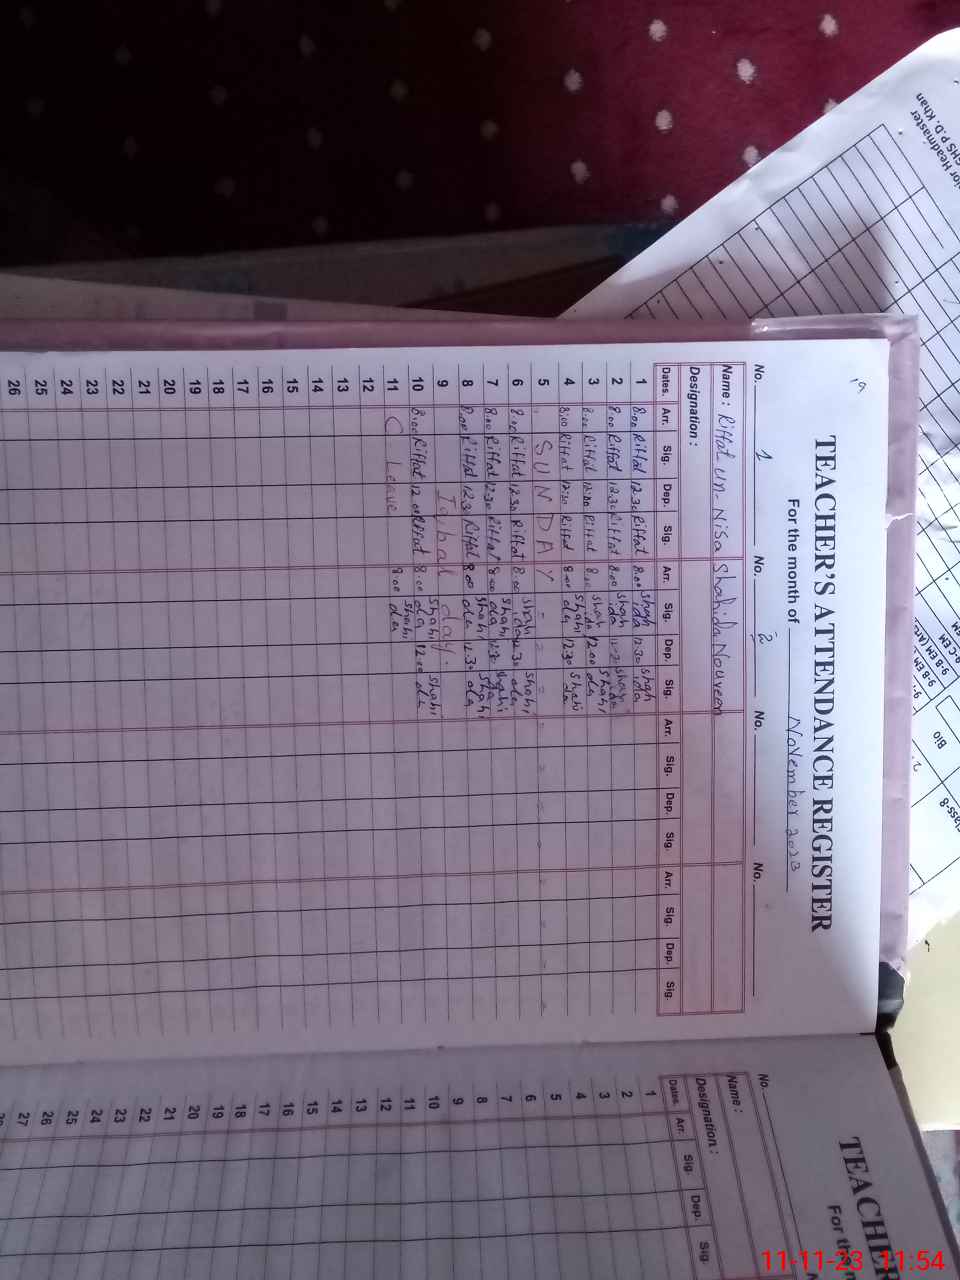 19
TEACHER'S ATTENDANCE REGISTER
For the month of November 2023
No. 1 No. 2 No. No.
Name: Riffat un-Nisa Shahida Nouveen
Designation:
Dates. Arr. Sig. Dep. Sig. Arr. Sig. Dep. Sig. Arr. Sig. Dep. Sig. Arr. Sig. Dep. Sig.
1 8:00 Riffat 12.30 Riffat 8:00 shahida 12.30 shahida
2 8:00 Riffat 12.30 Riffat 8:00 shahida shahida
3 8:00 Riffat 12:00 Riffat 8:00 shahida 12.00 shahida
4 8:00 Riffat 12:30 Riffat 8:00 shahida 12:30 shahida
5 SUNDAY
6 8:00 Riffat 12.30 Riffat 8:00 shahida 12.30 shahida
7 8:00 Riffat 12.30 Riffat 8:00 shahida 12.30 shahida
8 8:00 Riffat 12.30 Riffat 8:00 shahida 12.30 shahida
9 Iqbal day.
10 8:00 Riffat 12:00 Riffat 8:00 shahida 12:00 shahida
11 C Leave 8:00 shahida
12
13
14
15
16
17
18
19
20
21
22
23
24
25
26
TEACHE
For th
No.
Name:
Designation:
Dates. Arr. Sig. Dep. Sig.
1
2
3
4
5
6
7
8
9
10
11
12
13
14
15
16
17
18
19
20
21
22
23
24
25
26
27
ior Headmaster
GHS P.D. Khan
9-C EM
9-B EM (Arts)
9-B EM
Bio
Class-8
11-11-23 11:54